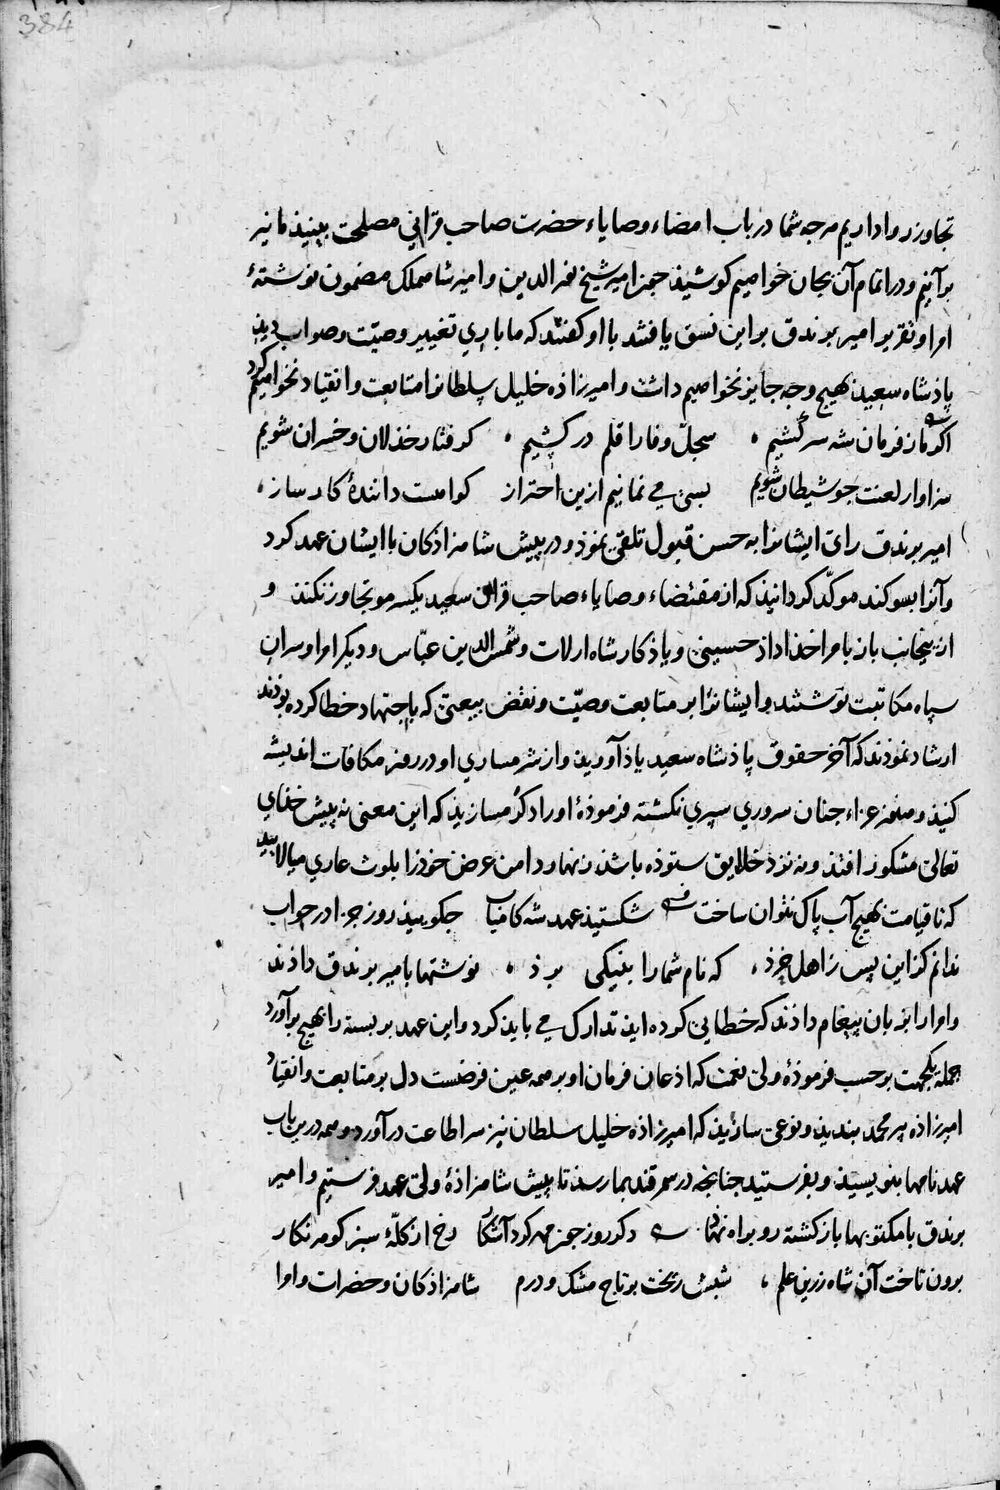 384
تجاوز روا داریم هرچه شما در باب امضاء وصایاء حضرت صاحب قرانی مصلحت بینید ما نیز
برآنیم و در اتمام آن بجان خواهیم کوشیذ چون امیر شیخ نور الدین و امیر شاهملک مضمون نوشتهٔ
امرا و تقریر امیر برندق برین نسق یافتند با او گفتند که ما باری تغییر وصیّت و صواب دید
پاذشاه سعید بهیچ وجه جایز نخواهیم داشت و امیرزاذه خلیل سلطانرا متابعت و انقیاد نخواهیم کرد
اگر ما ز فرمان شه سر کشیم ، سجلّ وفا را قلم در کشیم ، گرفتار خذلان و خسران شویم
سزاوار لعنت چو شیطان شویم بسی می نمانیم ازین احتراز کواهست دانندهٔ کارساز ،
امیر برندق رای ایشانرا به حسن قبول تلقی نموذ و در پیش شاهزاذکان با ایشان عهد کرد
و آنرا بسوکند موکّد کردانید که از مقتضاء وصایاء صاحب قران سعید یکسر مو تجاوز نکنند و
ازینجانب باز بامرا خداداذ حسینی و یاذکار شاه ارلات و شمس الدین عبّاس و دیکر امرا و سران
سپاه مکاتبت نوشتند و ایشانرا بر متابعت وصیّت و نقض بیعتی که باجتهاد خطا کرده بوذند
ارشاد نموذند که آخر حقوق پاذشاه سعید یاذ آورید و از شرمساری او در روز مکافات اندیشه
کنید و هنوز عزاء چنان سروری سپری نکشته فرمودهٔ او را دکر مسازید که این معنی نه پیش خدای
تعالی مشکور افتد و نه نزد خلایق ستوده باشد زنهار دامن عرض خوذرا بلوث عاری میالایید
که تا قیامت بهیچ آب پاک نتوان ساخت شکستید عهد شه کامیاب چکویید روز جزا در جواب
ندانم کزین پس ز اهل خرد ، که نام شما را بنیکی برد ، نوشتها بامیر برندق داذند
و امرا را بزبان پیغام داذند که خطایی کرده اید تدارک می باید کرد و این عهد بربسته را بهیچ برآورد
جمله یکجهت بر حسب فرمودهٔ ولی نعمت که اذعان فرمان او بر همه عین فرضست دل بر متابعت و انقیاد
امیرزاذه پیر محمد بندید و نوعی سازید که امیرزاذه خلیل سلطان نیز سر اطاعت درآورد و همه درین باب
عهد نامها بنویسید و بفرستید چنانچه در سمرقند بما رسد تا پیش شاهزاذهٔ ولی عهد فرستیم و امیر
برندق با مکتوبها بازکشته رو براه نهاد دکر روز چون مهر کرد آشکار رخ از کلّهٔ سبز کوهر نکار
برون تاخت آن شاه زرین علم ، شبش ریخت بر تاج مشک و درم شاهزاذکان و حضرات و امرا